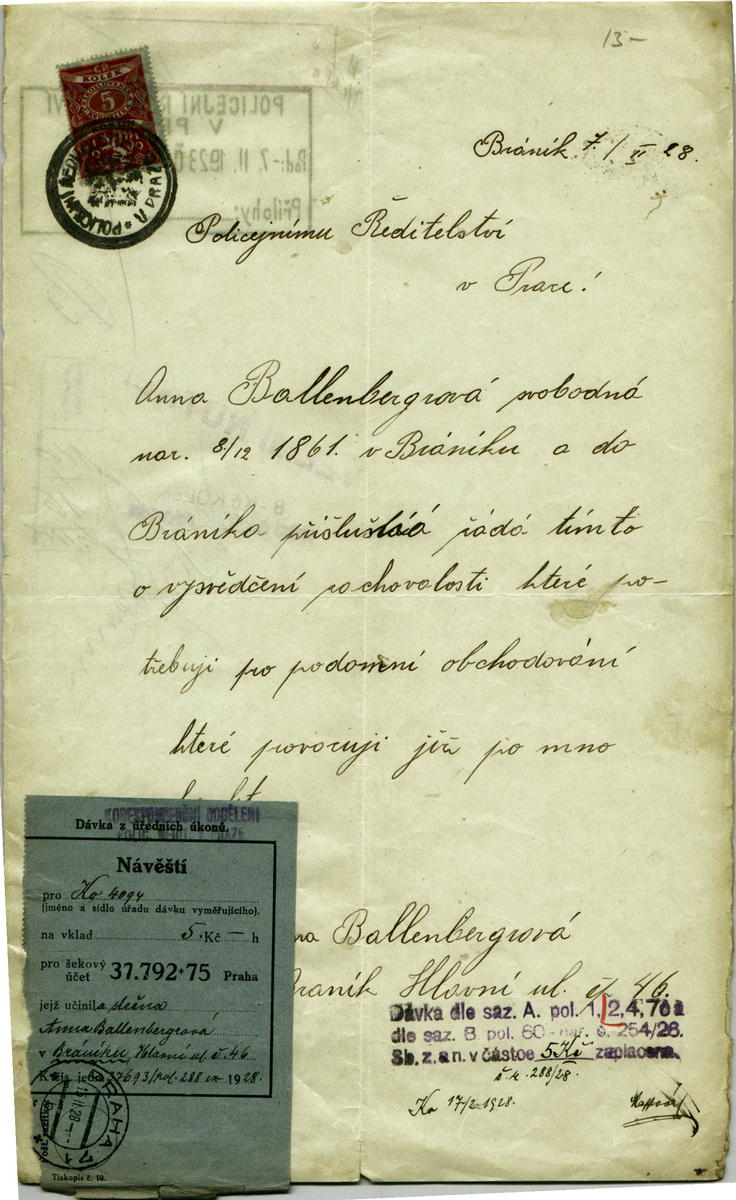 13 –
KOLEK
5
POLICEJNÍ ŘEDITELSTVÍ V PRAZE
POLICEJNÍ
V
7. II. 1923
Přílohy:
Bráník 7./II 28.
Policejnímu Ředitelství
v Praze!
Anna Ballenbergrová svobodná
nar. 8/12 1861. v Bráníku a do
Bráníka příslušná žádá tímto
o vysvědčení zachovalosti které po-
třebuji po podomní obchodování
které provozuji již po mno
Anna Ballenbergrová
Braník Hlavní ul. č. 46.
KORESPONDENČNÍ ODDĚLENÍ
Dávka z úředních úkonů.
Návěští
pro Ko 4094
(jméno a sídlo úřadu dávku vyměřujícího).
na vklad 5 Kč – h
pro šekový účet 37.792*75 Praha
jejž učinila slečna
Anna Ballenbergrová
v Bráníku, Hlavní ul. č. 46
K čís. jedn. 27693/pol. 288 1928.
PRAHA 71
15.II.28
Tiskopis č. 10.
Dávka dle saz. A. pol. 1, 2, 4, 7 a
dle saz. B pol. 60 - nař. č. 254/26.
Sb. z. a n. v částce 5 Kč zaplacena.
č. ř. 288/28.
Ko 17/2 1928.